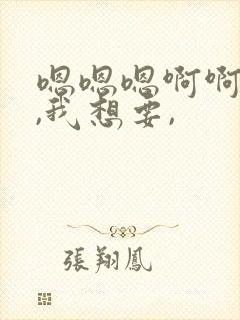 嗯嗯嗯啊啊
,我想要,
張翔鳳